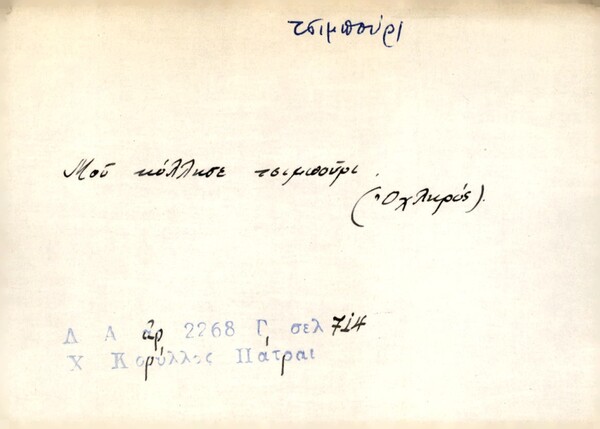 τσιμπούρι
Μοῦ κόλλησε τσιμπούρι.
(Ὀχληρός).
Λ Α ἀρ 2268 Γ σελ 714
Χ Κορύλλος Πάτραι